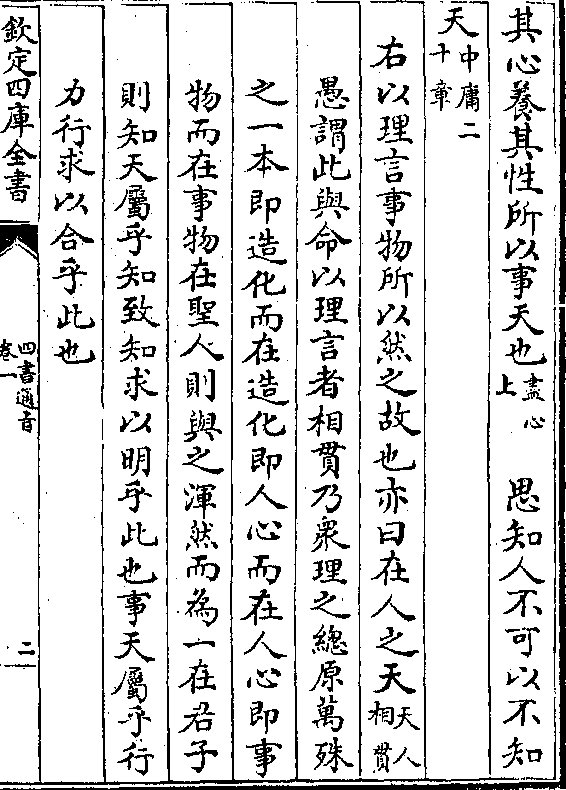 其心養其性所以事天也盡心上　思知人不可以不知
天中庸二十章
右以理言事物所以然之故也亦曰在人之天天人相貫
愚謂此與命以理言者相貫乃衆理之總原萬殊
之一本即造化而在造化即人心而在人心即事
物而在事物在聖人則與之渾然而為一在君子
則知天屬乎知致知求以明乎此也事天屬乎行
力行求以合乎此也
欽定四庫全書
四書通旨
卷一
二